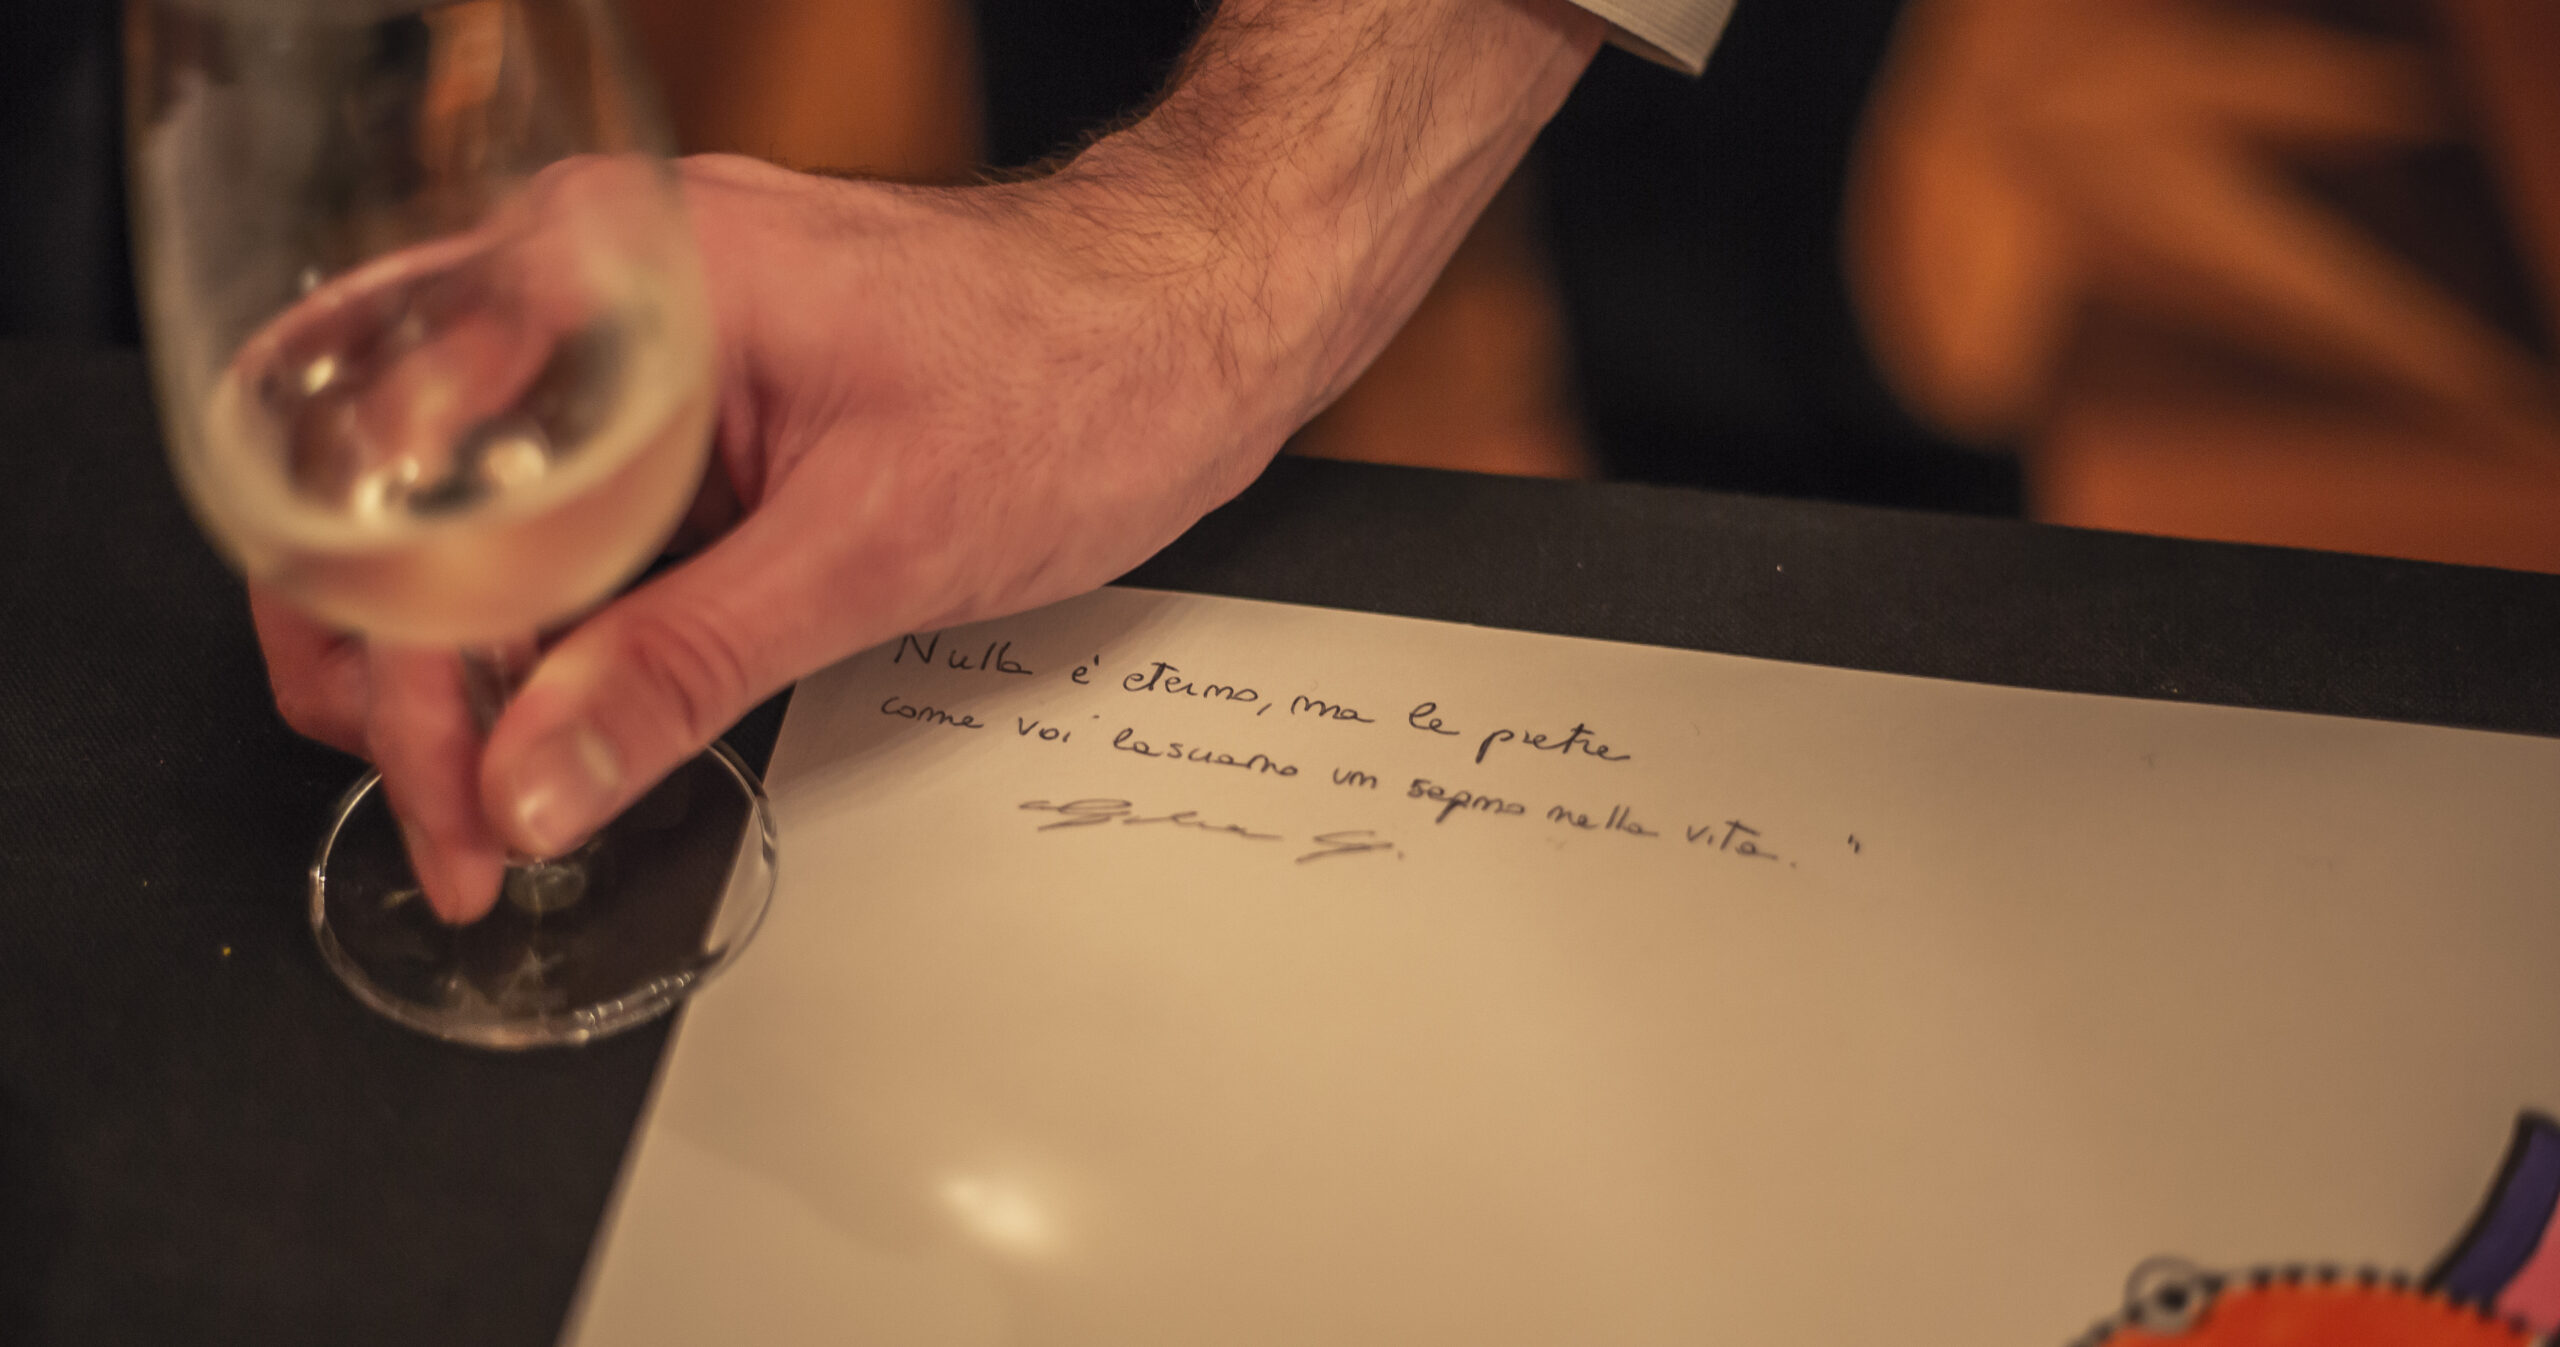 Nulla è eterno, ma le pietre
come voi lasciamo un segno nella vita. "